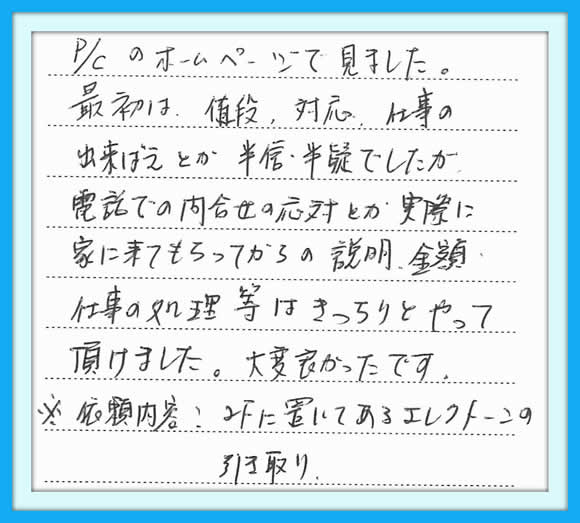 P/Cのホームページで見ました。
最初は、値段、対応、仕事の
出来ばえとか半信・半疑でしたが、
電話での問合せの応対とか実際に
家に来てもらってからの説明、金額・
仕事の処理等はきっちりとやって
頂けました。大変良かったです。
※依頼内容:2Fに置いてあるエレクトーンの
引き取り.